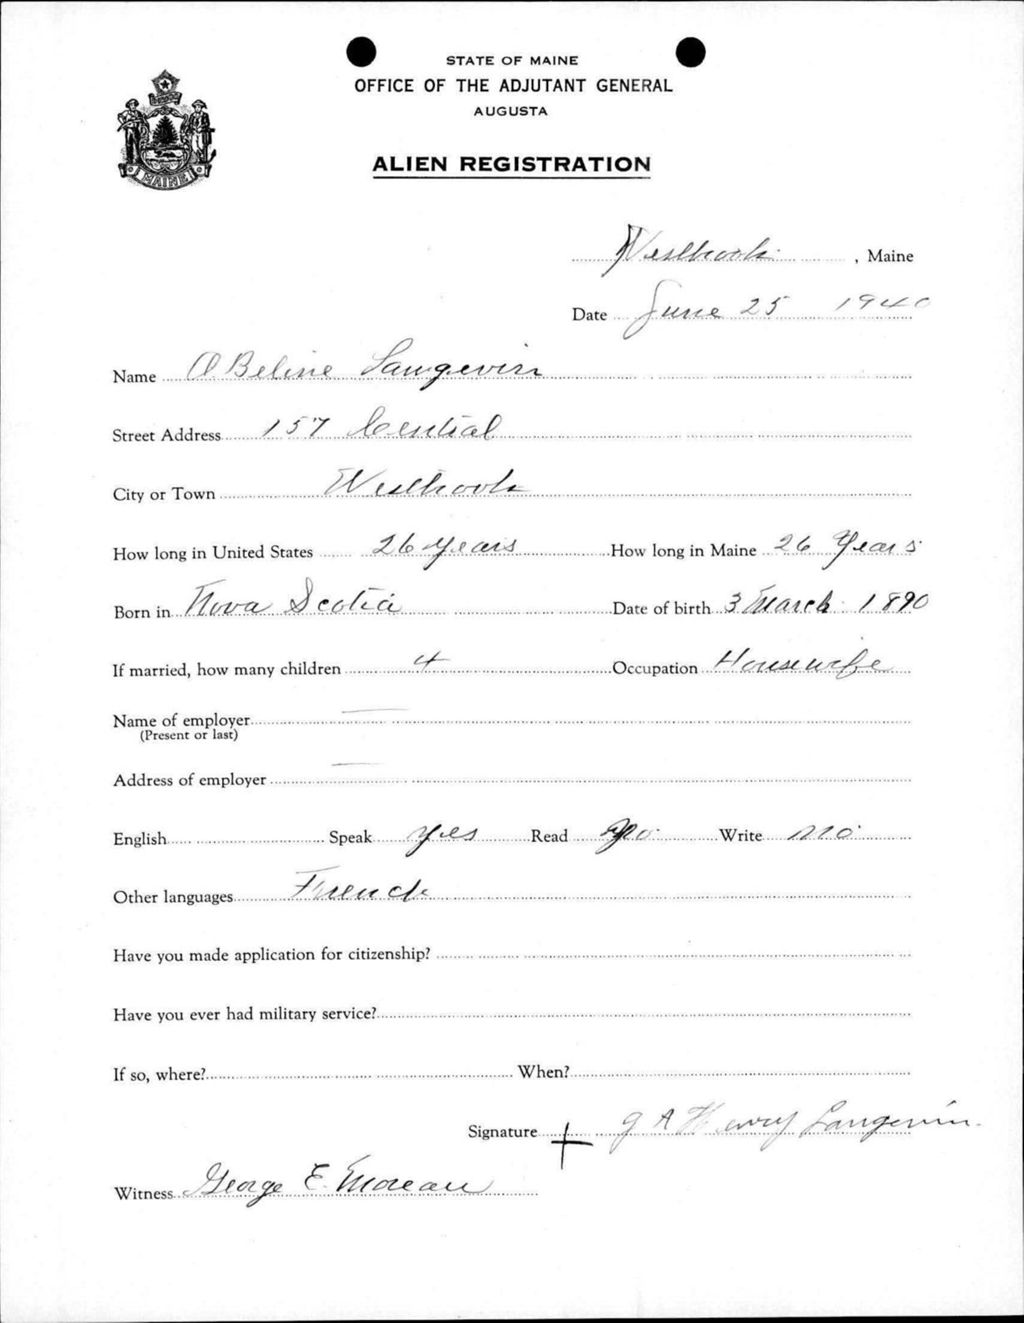 STATE OF MAINE
OFFICE OF THE ADJUTANT GENERAL
AUGUSTA
MAINE
ALIEN REGISTRATION
Westbrook, Maine
Date June 25 1940
Name O Beline Langevin
Street Address 157 Central
City or Town Westbrook
How long in United States 26 years How long in Maine 26 Years
Born in Nova Scotia Date of birth 3 March 1890
If married, how many children 4 Occupation Housewife
Name of employer —
(Present or last)
Address of employer —
English Speak yes Read no Write no
Other languages French
Have you made application for citizenship?
Have you ever had military service?
If so, where? When?
Signature + Henry Langevin
Witness George E. Moreau